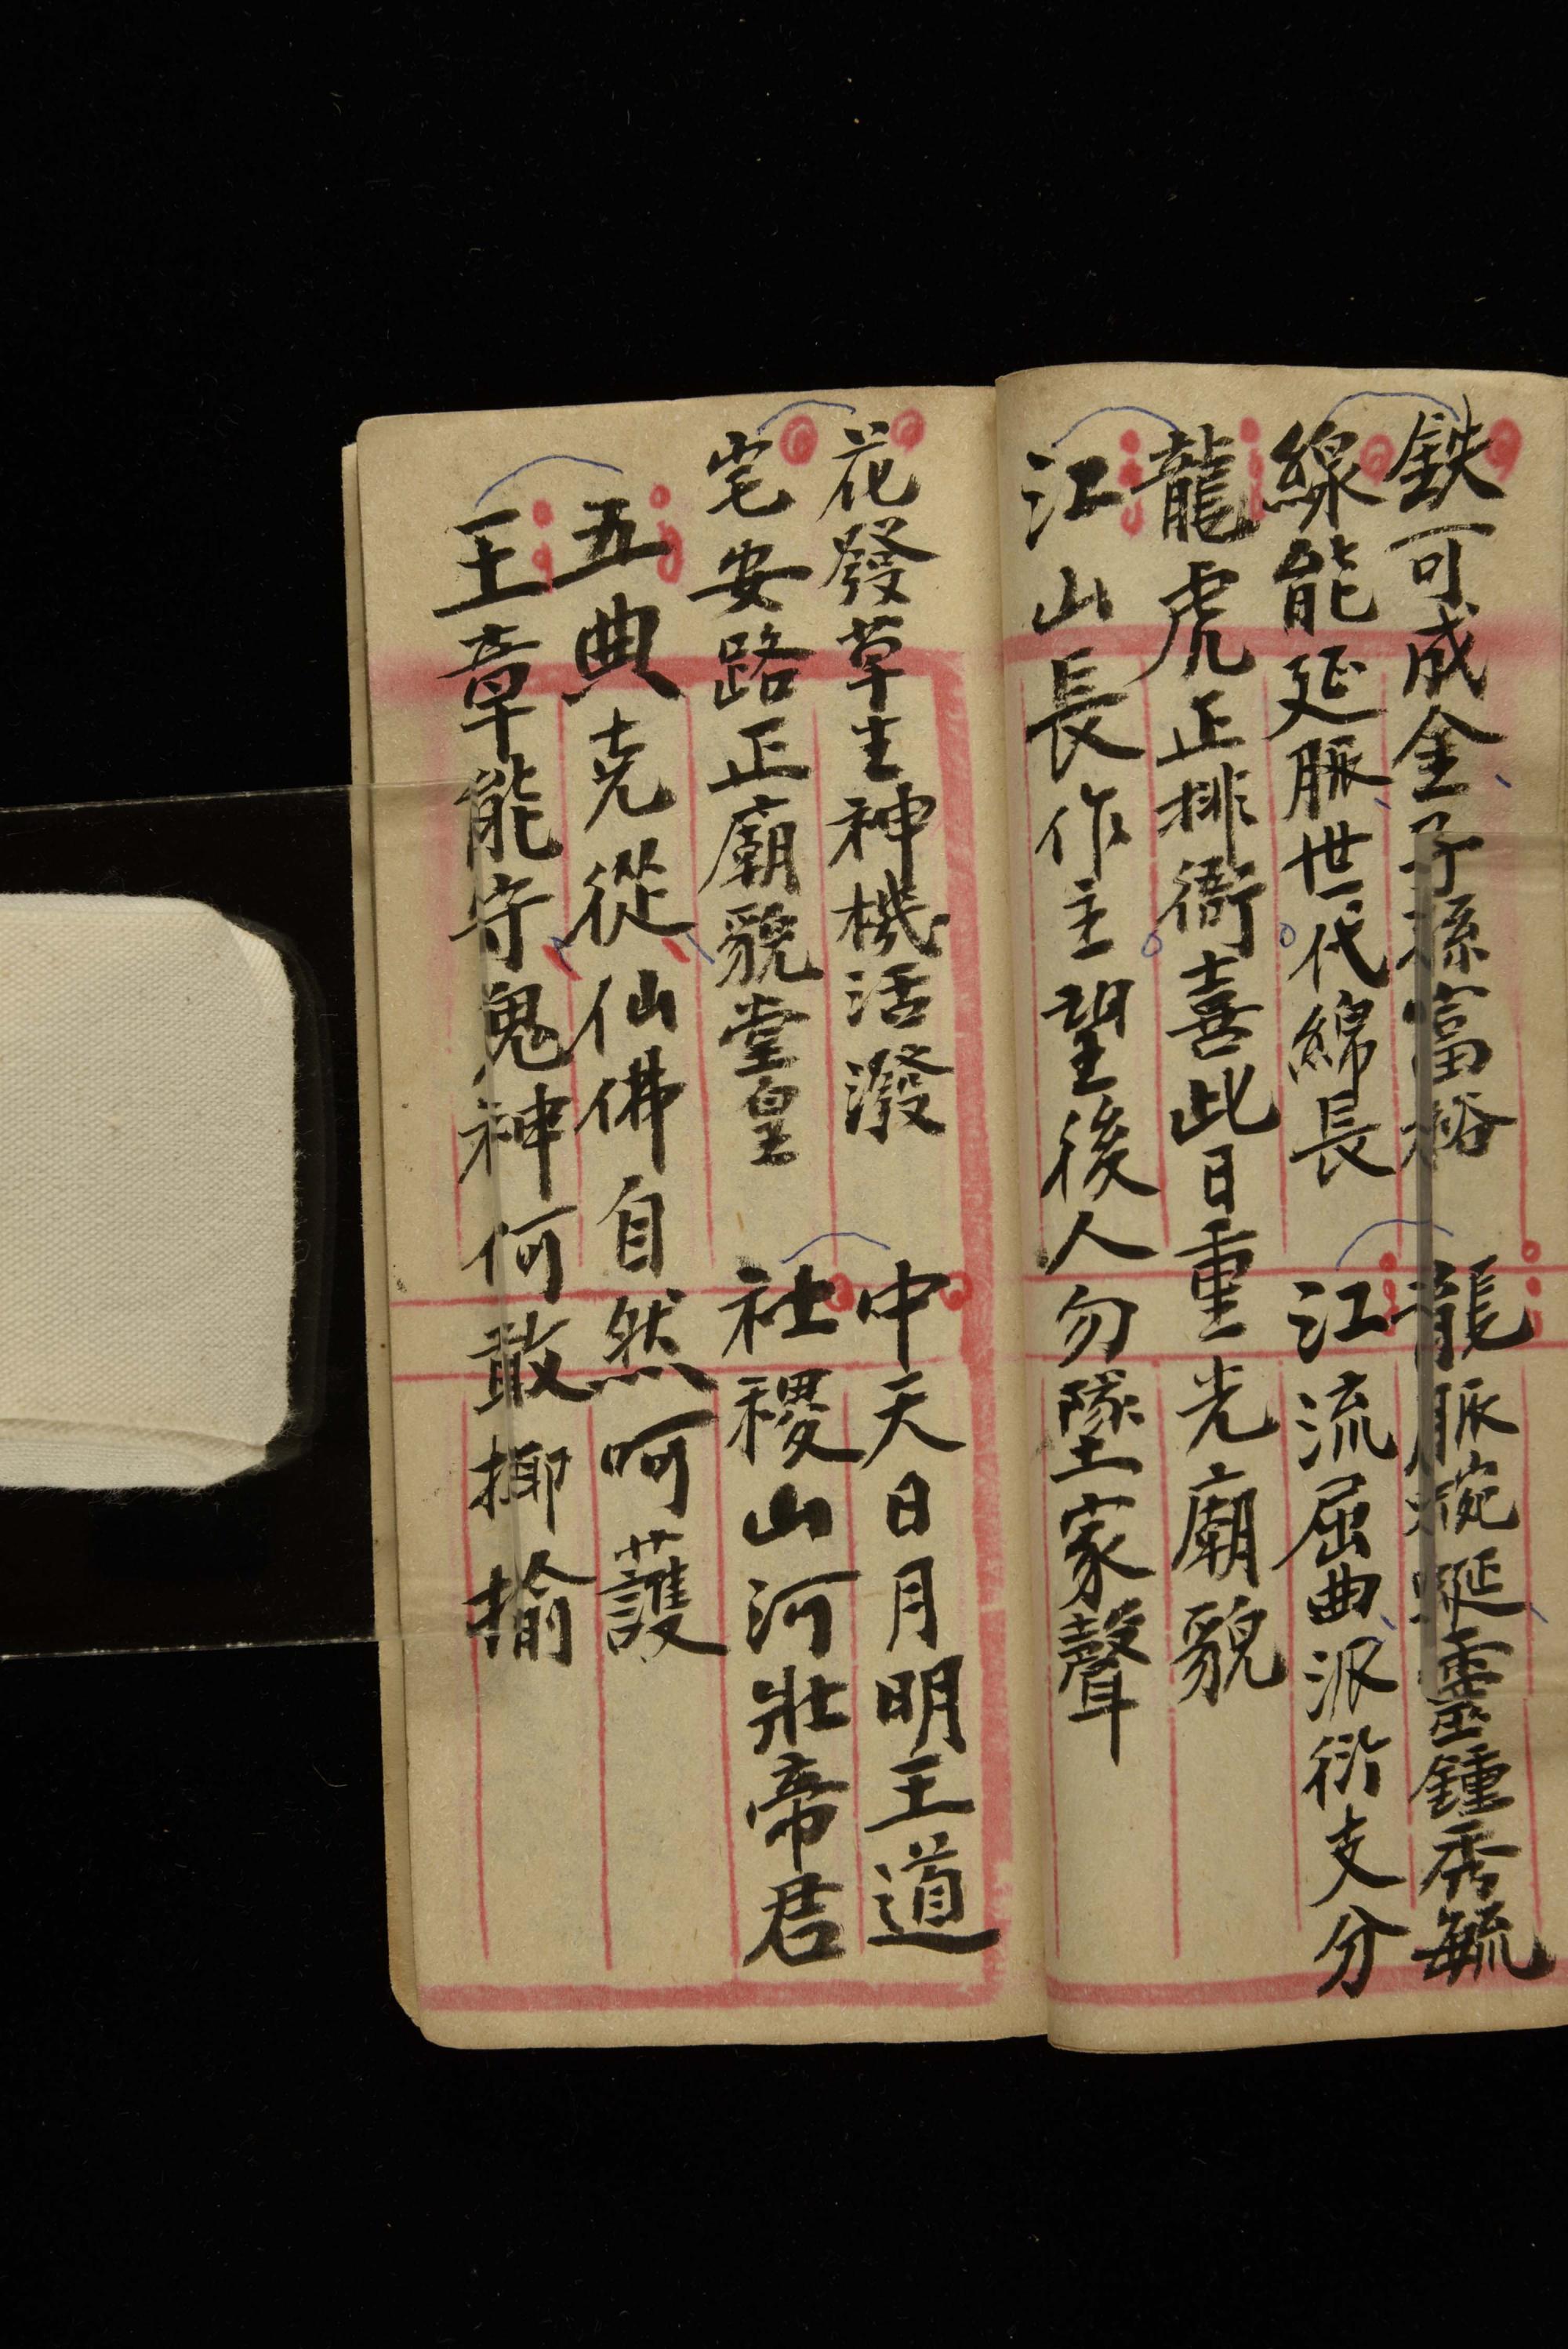 鉄可成金子孫富裕
線能延脈世代綿長
龍脈蜿蜒靈鍾秀毓
江流屈曲派衍支分
龍虎正排衙喜此日重光廟貌
江山長作主望後人勿墜家聲
花發草生神機活潑
宅安路正廟貌堂皇
中天日月明王道
社稷山河壯帝君
五典克從仙佛自然呵護
王章能守鬼神何敢揶揄